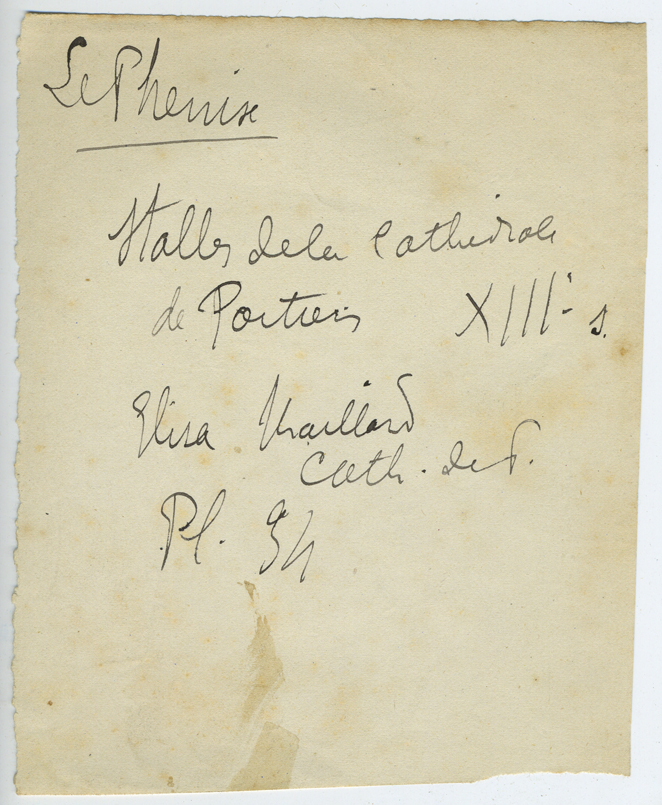 Le Phenix
Stalles de la Cathédrale
de Poitiers XIIIe s.
Elisa Maillard
Cath. de P.
Pl. 34